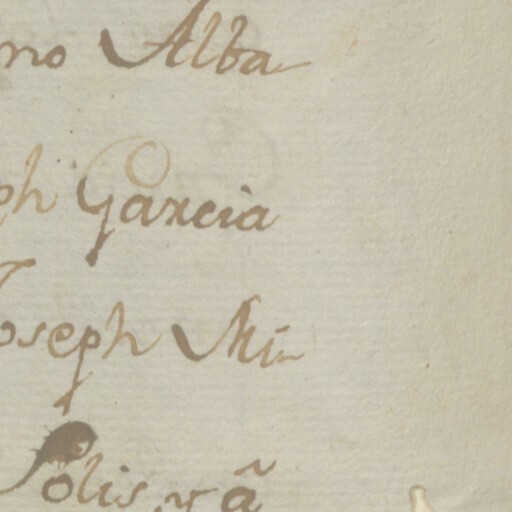 no Alba
ph Garcia
Joseph Mi-
Solis, y ã